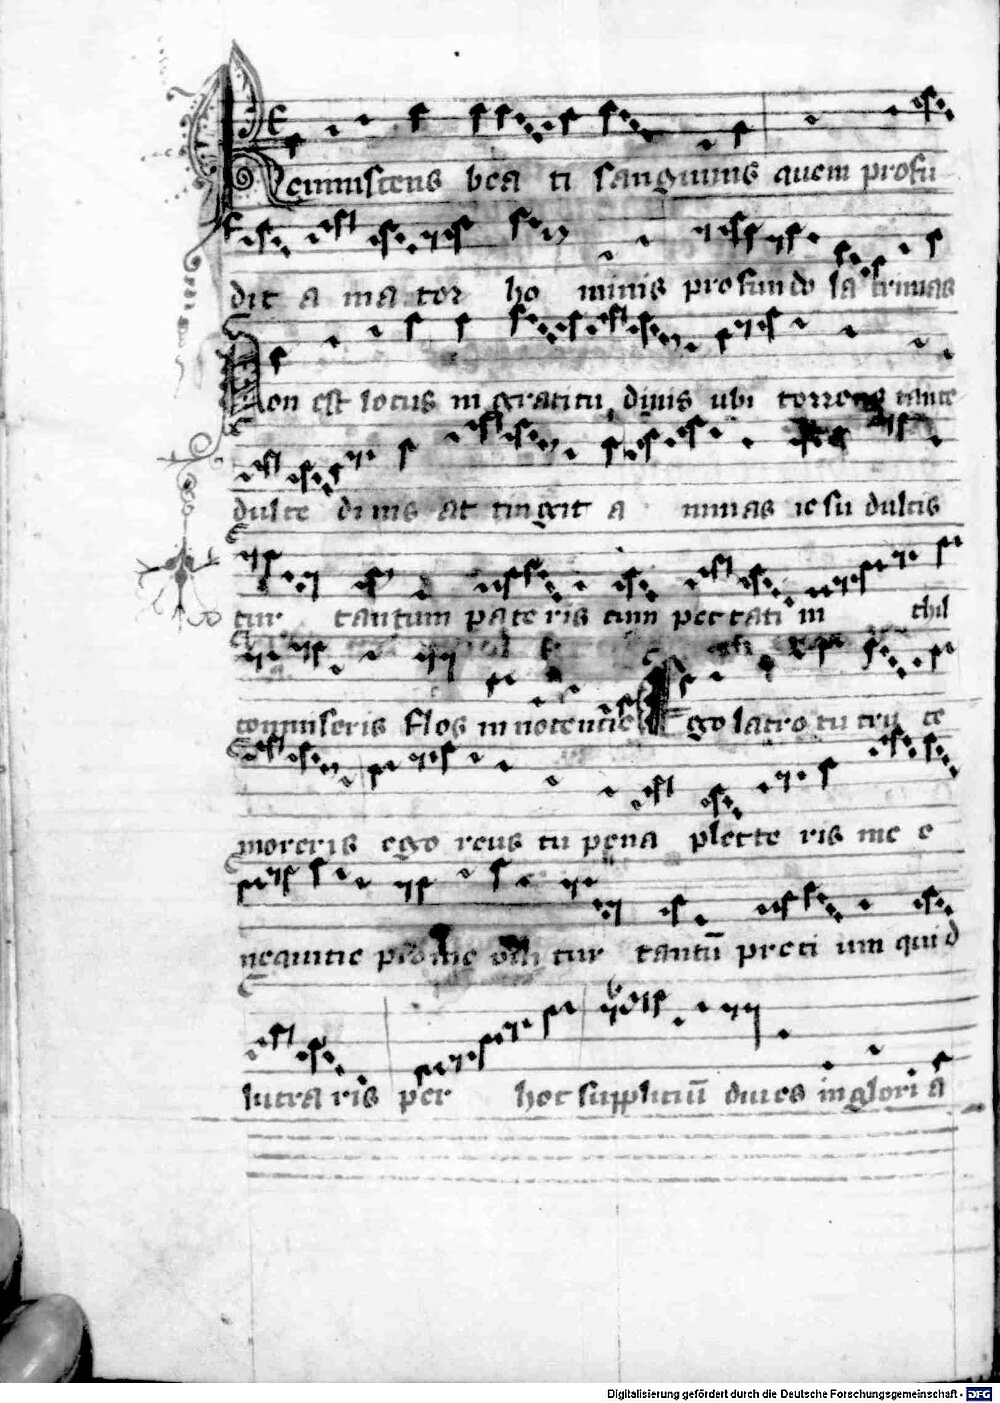 Reminiscens bea ti sanguinis quem profu
dit a ma tor ho minis profundo la crimas
Non est locus in gratitu dinis ubi torrens tante
dulce di nis at tingit a nimas iesu dulcis
tur tantum pate ris cum peccati in chil
commiseris flos innocencie Ego latro tu cru ce
moreris ego reus tu pena plecte ris me e
nequicie pro me tur tantū preci um quid
lucra ris per hoc suppliciū diues in glori a
Digitalisierung gefördert durch die Deutsche Forschungsgemeinschaft - DFG